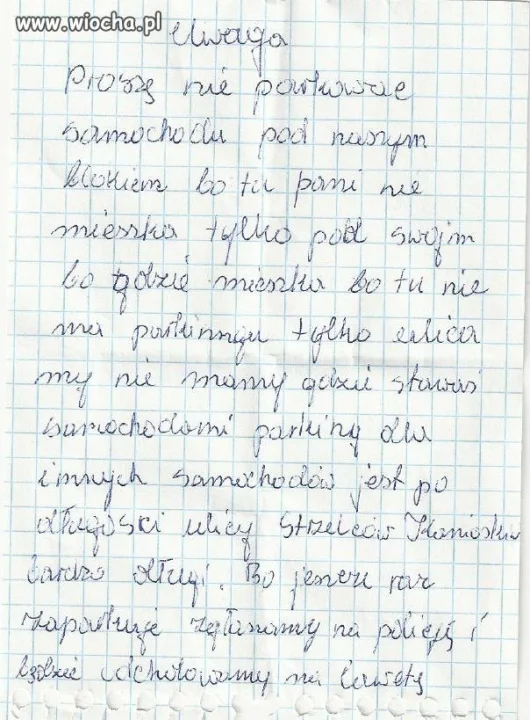 www.wiocha.pl
Uwaga
Proszę nie parkować
samochodu pod naszym
blokiem bo tu pani nie
mieszka tylko pod swojm
bo gdzie mieszka bo tu nie
ma parkinngu tylko ulica
my nie mamy gdzie stawać
samochodami parking dla
innych samochodów jest po
długoski ulicy Strzelców
bardzo długi. Bo jeszcze raz
zaparkuje zgłaszamy na policję i
będzie odcholowamy na lawetę